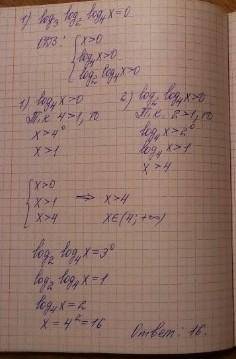 1) log₃ log₂ log₄ x = 0
ОДЗ: { x > 0
log₄ x > 0
log₂ log₄ x > 0
1) log₄ x > 0
Т.к. 4 > 1, то
x > 4⁰
x > 1
2) log₂ log₄ x > 0
Т.к. 2 > 1, то
log₄ x > 2⁰
log₄ x > 1
x > 4
{ x > 0
x > 1 ⇒ x > 4
x > 4 x ∈ (4; +∞)
log₂ log₄ x = 3⁰
log₂ log₄ x = 1
log₄ x = 2
x = 4² = 16
Ответ: 16.